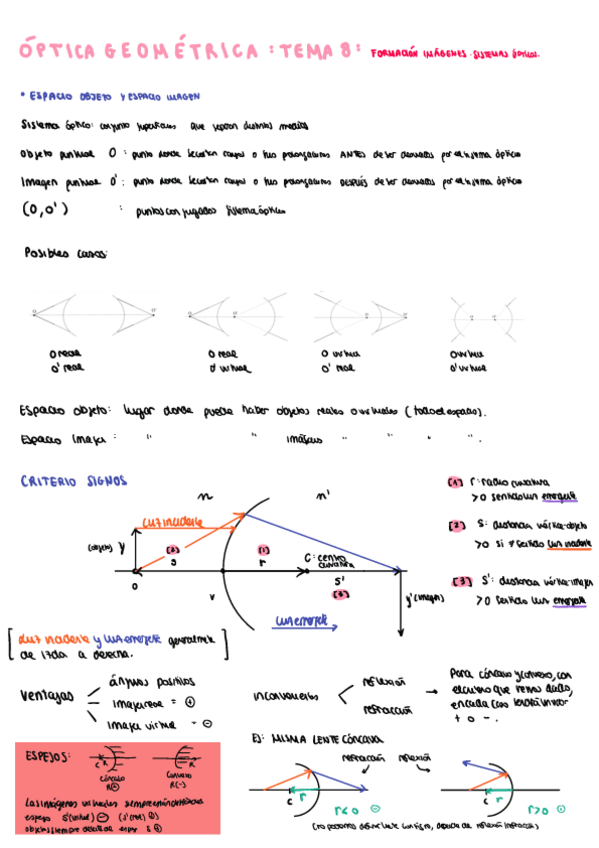 ÓPTICA GEOMÉTRICA : TEMA 8 : FORMACIÓN IMÁGENES. SISTEMAS ÓPTICOS.
* ESPACIO OBJETO Y ESPACIO IMAGEN
Sistema óptico: conjunto superficies que separan distintos medios
Objeto puntual O : punto donde se cortan rayos o sus prolongaciones ANTES de ser desviados por el sistema óptico
Imagen puntual O' : punto donde se cortan rayos o sus prolongaciones DESPUÉS de ser desviados por el sistema óptico
(O,O') : puntos conjugados sistema óptico
Posibles casos:
O O'
O real O real O virtual O virtual
O' real O' virtual O' real O' virtual
Espacio objeto: lugar donde puede haber objetos reales o virtuales (todo el espacio).
Espacio imagen : " " imágenes " " " ".
CRITERIO SIGNOS
n n'
luz incidente
(objeto) y
[2] s
[1] r
C: centro curvatura
O
V
s'
[3]
y' (imagen)
luz emergente
[1] r: radio curvatura
>0 sentido luz emergente
[2] s: distancia vértice-objeto
>0 si ≠ sentido luz incidente
[3] s': distancia vértice-imagen
>0 sentido luz emergente
[luz incidente y luz emergente generalmente
de izda a derecha.]
ventajas
ángulos positivos
imagen real = +
imagen virtual = -
inconvenientes
reflexión
refracción
Para cóncavo y convexo, con
en cada caso
+ o -.
ESPEJOS:
C R
cóncavo
R(+)
R
convexo
R(-)
Las imágenes virtuales siempre están detrás
espejo s'(virtual) - (s'(real) +)
objeto siempre delante de espejo s +
EJ: MISMA LENTE CÓNCAVA
refracción reflexión
C r
r<0 -
C r
r>0 +
(no podemos definir lente con signo, depende de reflexión/refracción)